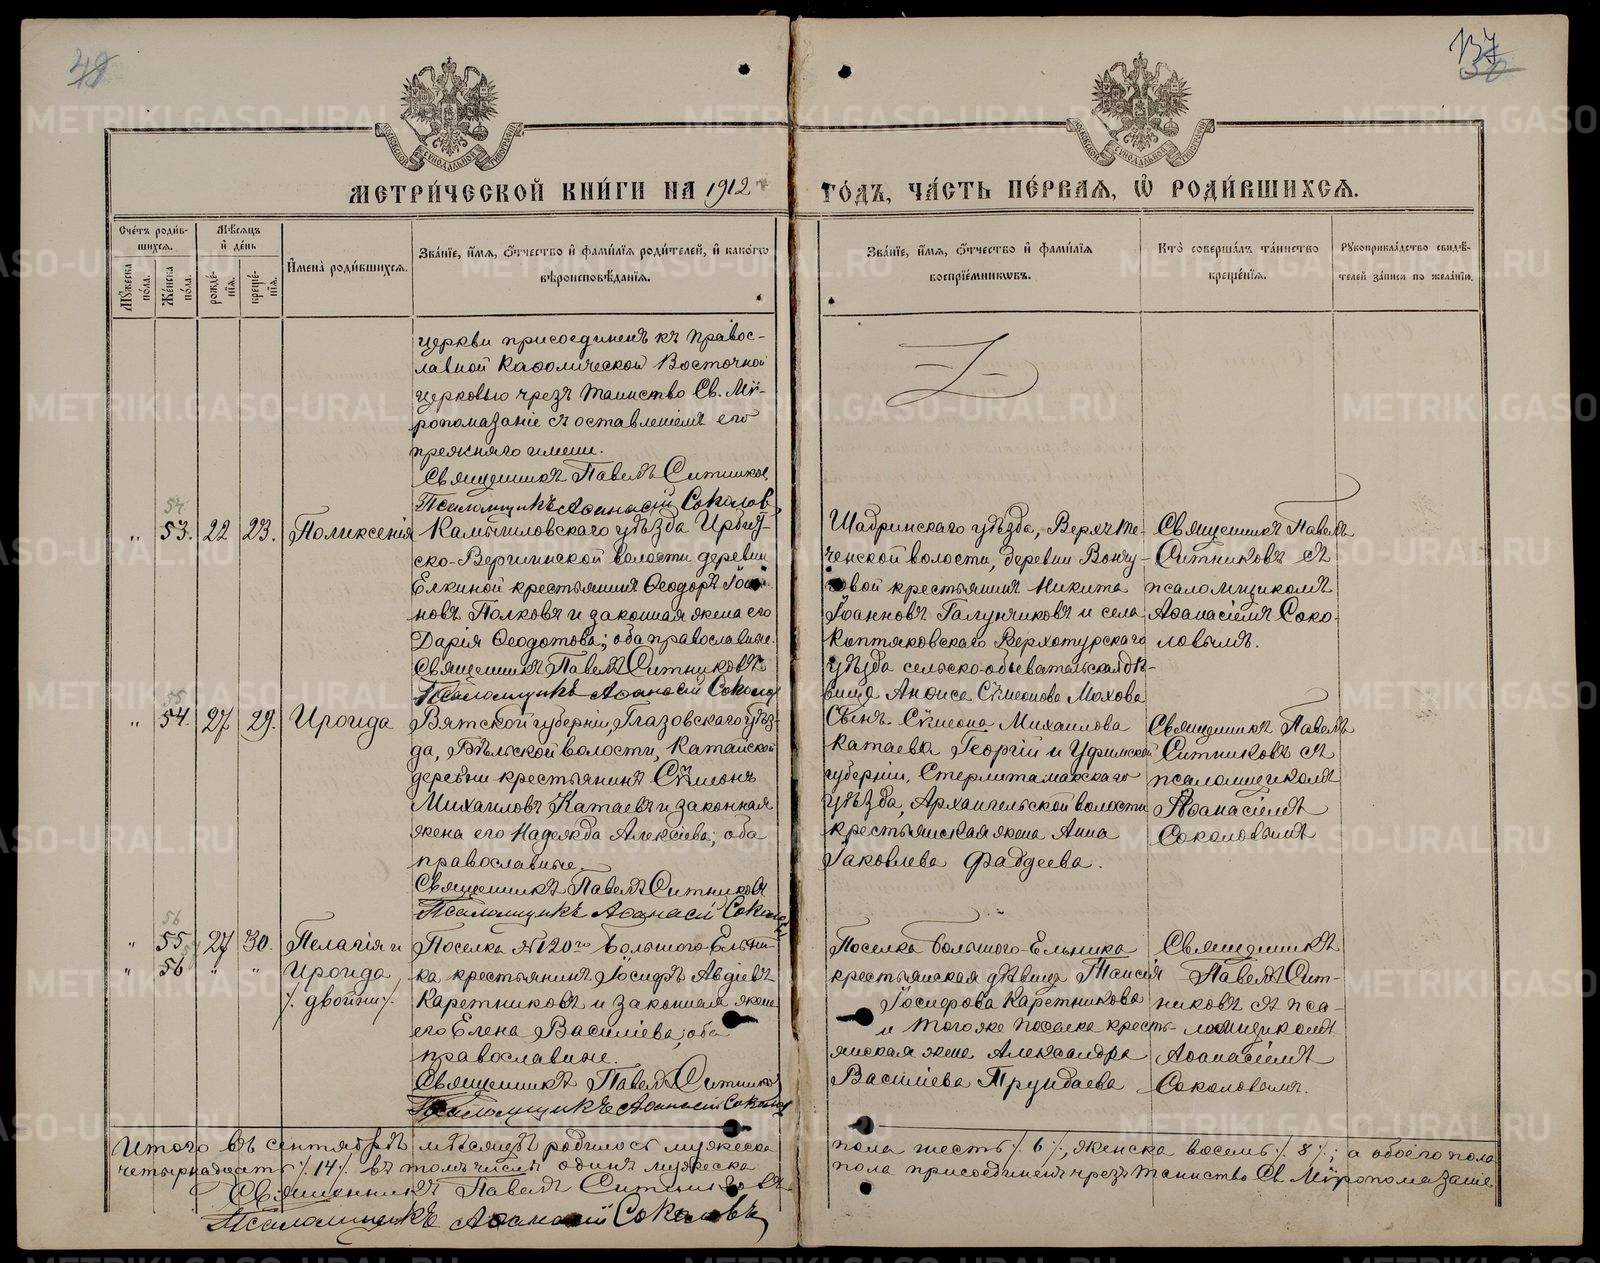 49
137
50
МОСКОВСКОЙ СѴНОДАЛЬНОЙ ТИПОГРАФІИ
МОСКОВСКОЙ СѴНОДАЛЬНОЙ ТИПОГРАФІИ
МЕТРИ́ЧЕСКОЙ КНИ́ГИ НА 1912
ГО́ДЪ, ЧА́СТЬ ПЕ́РВАЯ, Ѽ РОДИ́ВШИХСЯ.
Сче́тъ роди́в-
шихся.
Мѣ́сяцъ
и҆ де́нь
Мꙋ́жеска
по́ла.
Же́нска
по́ла.
рожде́-
нїя.
креще́-
нїя.
И҆мена̀ роди́вшихся.
Зва́нїе, и҆́мя, ѻ҆́тчество и҆ фами́лїя роди́телей, и҆ како́гѡ
вѣроисповѣ́данїя.
Зва́нїе, и҆́мя, ѻ҆́тчество и҆ фами́лїя
воспрїе́мниковъ.
Кто̀ соверша́лъ та́инство
креще́нїя.
Рꙋкоприкла́дство свидѣ́-
телей за́писи по жела́нїю.
церкви присоединенъ къ Право-
славной Каѳолической Восточной
церковью чрезъ таинство Св. Мѵ-
ропомазаніе съ оставленіемъ его
прежняго имени.
Священникъ Павелъ Ситников
Псаломщикъ Аѳанасій Соколов
54
„ 53. 22 23. Поликсенія
Камышловскаго уѣзда
ско-Вершинской волости деревни
Елкиной крестьянинъ Ѳеодоръ Іоан-
новъ Полковъ и законная жена его
Дарія Ѳеодотова; оба православные.
Священникъ Павелъ Ситниковъ
Псаломщикъ Аѳанасій Соколов
Шадринскаго уѣзда, Верхъ Те-
ченской волости, деревни
крестьянинъ Никита
Іоанновъ Галунчиковъ и села
Коптяковскаго Верхотурскаго
уѣзда сельско-обывательская дѣ-
вица Анѳиса Сѵмеонова Мохова
Священникъ Павелъ
Ситниковъ съ
псаломщикомъ
Аѳанасіемъ Соко-
ловымъ.
55
„ 54. 27 29. Ироида
Вятской губерніи, Глазовскаго уѣз-
да, Бѣльской волости, Катайской
деревни крестьянинъ Сѵмеонъ
Михаиловъ Катаевъ и законная
жена его Надежда Алексіева; оба
православные.
Священникъ Павелъ Ситниковъ
Псаломщикъ Аѳанасій Соколовъ
Сынъ Сѵмеона Михаилова
Катаева Георгій и Уфимской
губерніи, Стерлитамакскаго
уѣзда, Архангельской волости
крестьянская жена Анна
Іаковлева Фаддеева.
Священникъ Павелъ
Ситниковъ съ
псаломщикомъ
Аѳанасіемъ
Соколовымъ
56
„ 55 27 30. Пелагія и
„ 56 „ „ Ироида
/. двойни /.
Поселка №120го Большого-Ельни-
ка крестьянинъ Іосифъ Авдіевъ
Каретниковъ и законная жена
его Елена Василіева; оба
православные.
Священникъ Павелъ Ситников
Псаломщикъ Аѳанасій Соколов
Поселка Большого-Ельника
крестьянская дѣвица Таисія
Іосифова Каретникова
и того же поселка кресть-
янская жена Александра
Василіева Трундаева
Священникъ
Павелъ Сит-
никовъ съ пса-
ломщикомъ
Аѳанасіемъ
Соколовымъ.
Итого въ сентябрѣ мѣсяцѣ родилось мужеска
пола шесть /. 6 /., женска восемь /. 8 /.; а обоего пола
четырнадцать /. 14 /. въ томъ числѣ одинъ мужеска
пола присоединенъ чрезъ таинство Св. Мѵропомазаніе.
Священникъ Павелъ Ситниковъ
Псаломщикъ Аѳанасій Соколовъ
METRIKI.GASO-URAL.RU